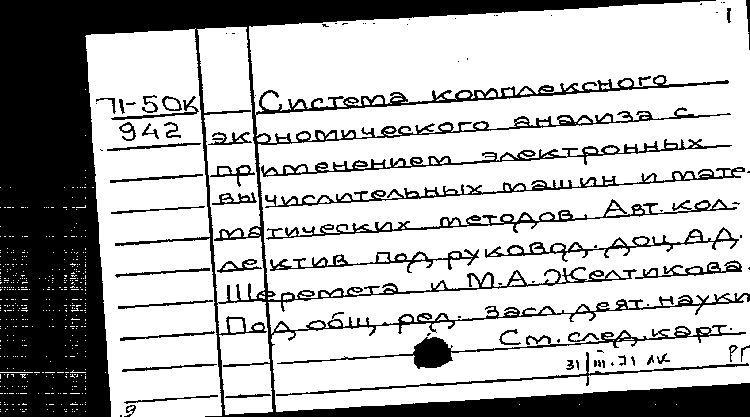 1
71-50К Система комплексного
942 экономического анализа с
применением электронных
вычислительных машин и мате-
матических методов. Авт. кол-
лектив под руковод. доц. А.Д.
Шеремета и М.А. Желтикова.
Под общ. ред. засл. деят. науки
См. след. карт.
31/III-71 ЛК РГ
9